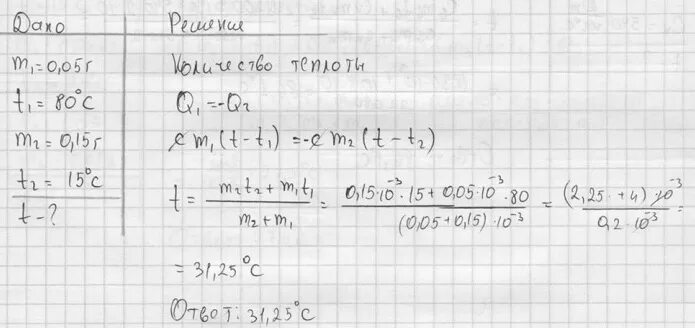 Дано
Решение
m₁=0,05г
t₁=80°C
m₂=0,15г
t₂=15°C
t-?
Количество теплоты
Q₁=-Q₂
c m₁(t-t₁)=-c m₂(t-t₂)
t = (m₂t₂+m₁t₁)/(m₂+m₁) = (0,15·10⁻³·15+0,05·10⁻³·80)/((0,05+0,15)·10⁻³) = ((2,25·+4)·10⁻³)/(0,2·10⁻³) =
= 31,25°C
Ответ: 31,25°C